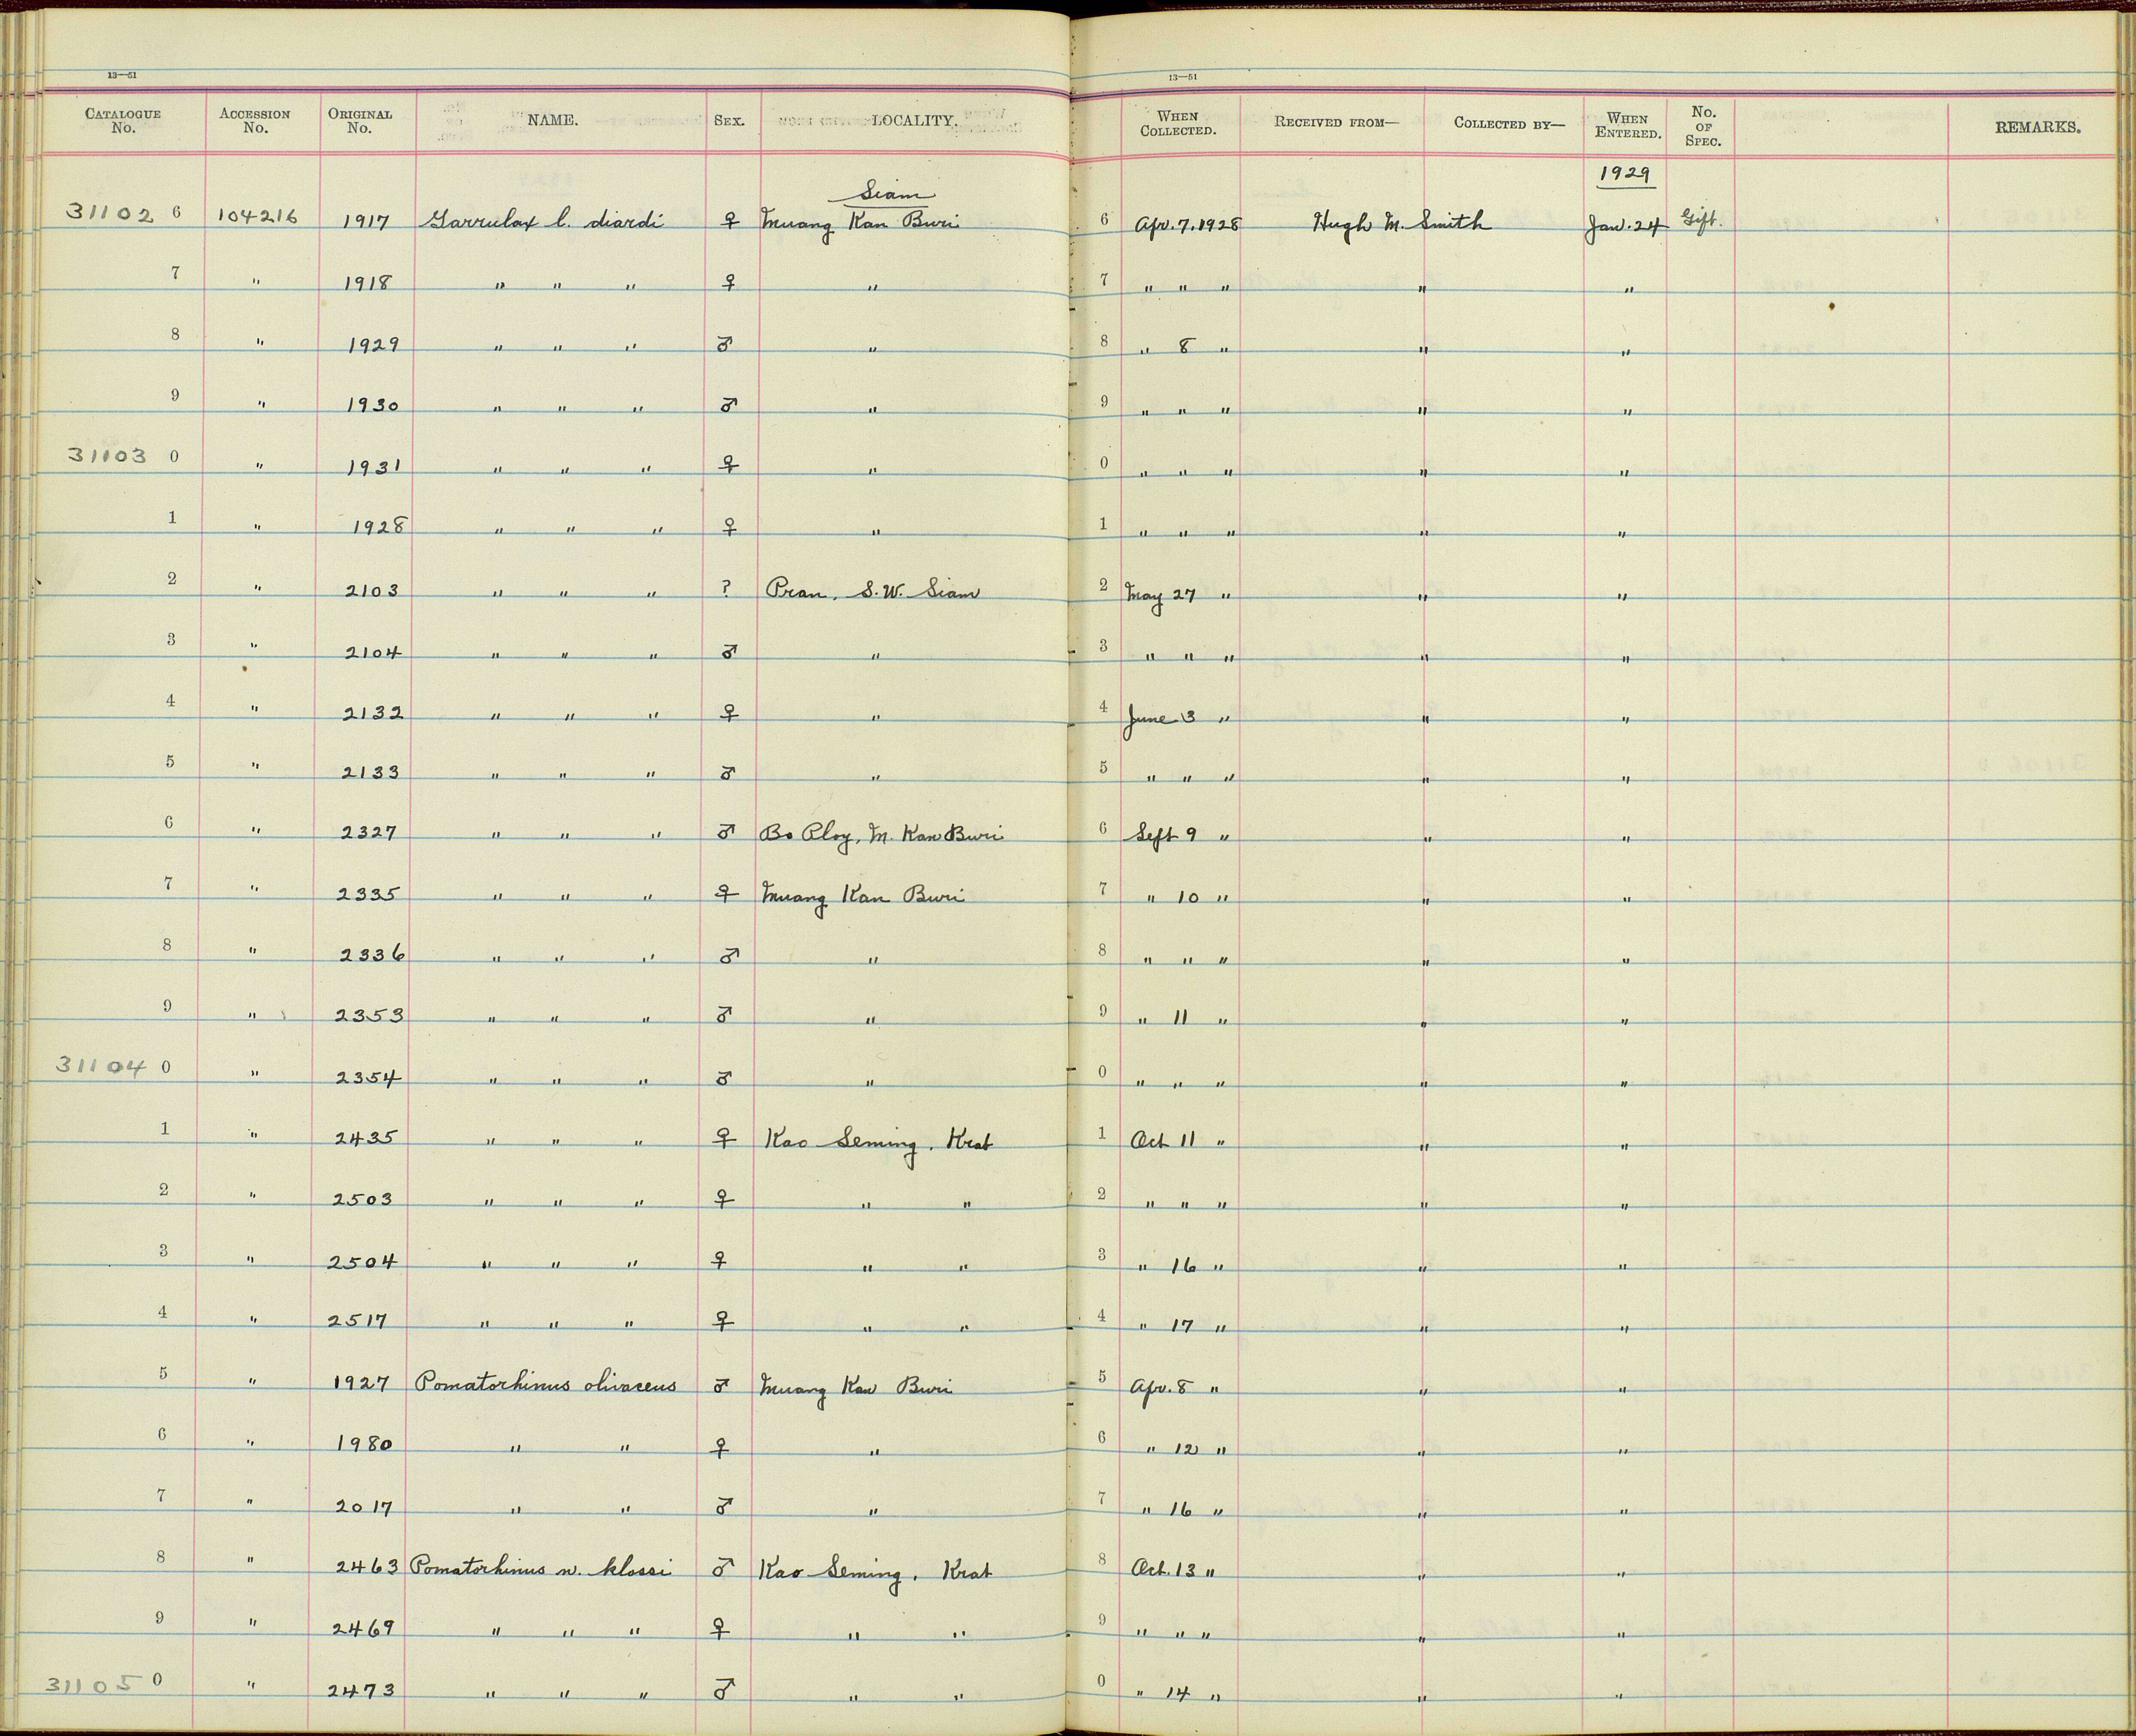 13—51 13—51
CATALOGUE No. ACCESSION No. ORIGINAL No. NAME. SEX. LOCALITY. WHEN COLLECTED. RECEIVED FROM— COLLECTED BY— WHEN ENTERED. No. OF SPEC. REMARKS.
Siam 1929
31102 6 104216 1917 Garrulax l. diardi ♀ Muang Kan Buri 6 Apr. 7, 1928 Hugh M. Smith Jan. 24 Gift.
7 " 1918 " " " ♀ " 7 " " " " "
8 " 1929 " " " ♂ " 8 " 8 " " "
9 " 1930 " " " ♂ " 9 " " " " "
31103 0 " 1931 " " " ♀ " 0 " " " " "
1 " 1928 " " " ♀ " 1 " " " " "
2 " 2103 " " " ? Pran, S.W. Siam 2 May 27 " " "
3 " 2104 " " " ♂ " 3 " " " " "
4 " 2132 " " " ♀ " 4 June 3 " " "
5 " 2133 " " " ♂ " 5 " " " " "
6 " 2327 " " " ♂ Bo Ploy, M. Kan Buri 6 Sept 9 " " "
7 " 2335 " " " ♀ Muang Kan Buri 7 " 10 " " "
8 " 2336 " " " ♂ " 8 " " " " "
9 " 2353 " " " ♂ " 9 " 11 " " "
31104 0 " 2354 " " " ♂ " 0 " " " " "
1 " 2435 " " " ♀ Kao Seming, Krat 1 Oct 11 " " "
2 " 2503 " " " ♀ " " 2 " " " " "
3 " 2504 " " " ♀ " " 3 " 16 " " "
4 " 2517 " " " ♀ " " 4 " 17 " " "
5 " 1927 Pomatorhinus olivaceus ♂ Muang Kan Buri 5 Apr. 8 " " "
6 " 1980 " " ♀ " 6 " 12 " " "
7 " 2017 " " ♂ " 7 " 16 " " "
8 " 2463 Pomatorhinus n. klossi ♂ Kao Seming, Krat 8 Oct. 13 " " "
9 " 2469 " " " ♀ " " 9 " " " " "
31105 0 " 2473 " " " ♂ " " 0 " 14 " " "